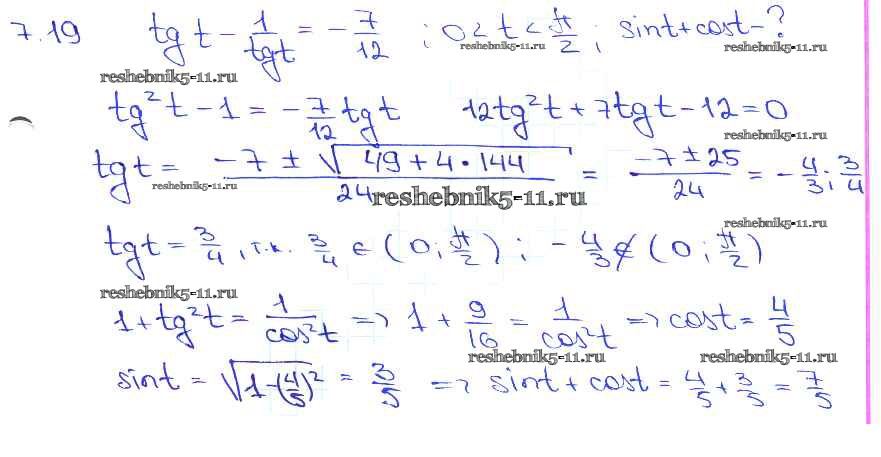 7.19 tg t - 1/tgt = - 7/12 ; 0 < t < π/2 ; sint + cost - ?
reshebnik5-11.ru reshebnik5-11.ru
reshebnik5-11.ru
tg²t - 1 = - 7/12 tgt 12tg²t + 7tgt - 12 = 0
reshebnik5-11.ru
tgt = (-7 ± √(49 + 4·144))/24 = (-7 ± 25)/24 = - 4/3; 3/4
reshebnik5-11.ru reshebnik5-11.ru
reshebnik5-11.ru
tgt = 3/4, т.к. 3/4 ∈ (0; π/2) ; - 4/3 ∉ (0; π/2)
reshebnik5-11.ru
1 + tg²t = 1/cos²t => 1 + 9/16 = 1/cos²t => cost = 4/5
reshebnik5-11.ru reshebnik5-11.ru
sint = √(1-(4/5)²) = 3/5 => sint + cost = 4/5 + 3/5 = 7/5